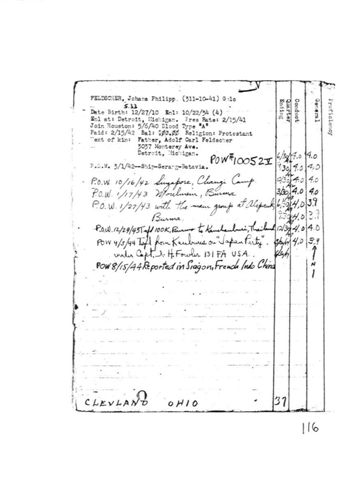 FELDSCHER, Johann Philipp (311-10-41) GM1c
5.11
Date Birth: 12/27/10 Enl: 10/22/34 (4)
Enl at: Detroit, Michigan. Pres Rate: 2/15/41
Join Houston: 5/6/40 Blood Type "A"
Paid: 2/15/42 Bal: Religion: Protestant
Next of kin: Father, Adolf Carl Feldscher
3057 Monterey Ave.
Detroit, Michigan.
POW#10052
P.O.W. 3/1/42--Ship-Serang-Batavia.
P.O.W. 10/16/42 Singapore, Changi Camp
P.O.W. 1/17/43 Moulmein, Burma
P.O.W. 1/27/43 with the main group at
Burma
P.O.W. 12/29/43 Tsf 100K, Burma to Kanchanburi, Thailand
POW 4/5/44 Tsf from Kanburi on "Japan Party"
under Capt. Fowler 131 FA USA.
POW 8/15/44 Reported in Saigon, French Indo China
CLEVLAND OHIO
37
Quarter Ending
Conduct
General
Proficiency
4.0 4.0
4.0 4.0
4.0 4.0
4.0 3.9
4.0
4.0 4.0
4.0 3.9
116